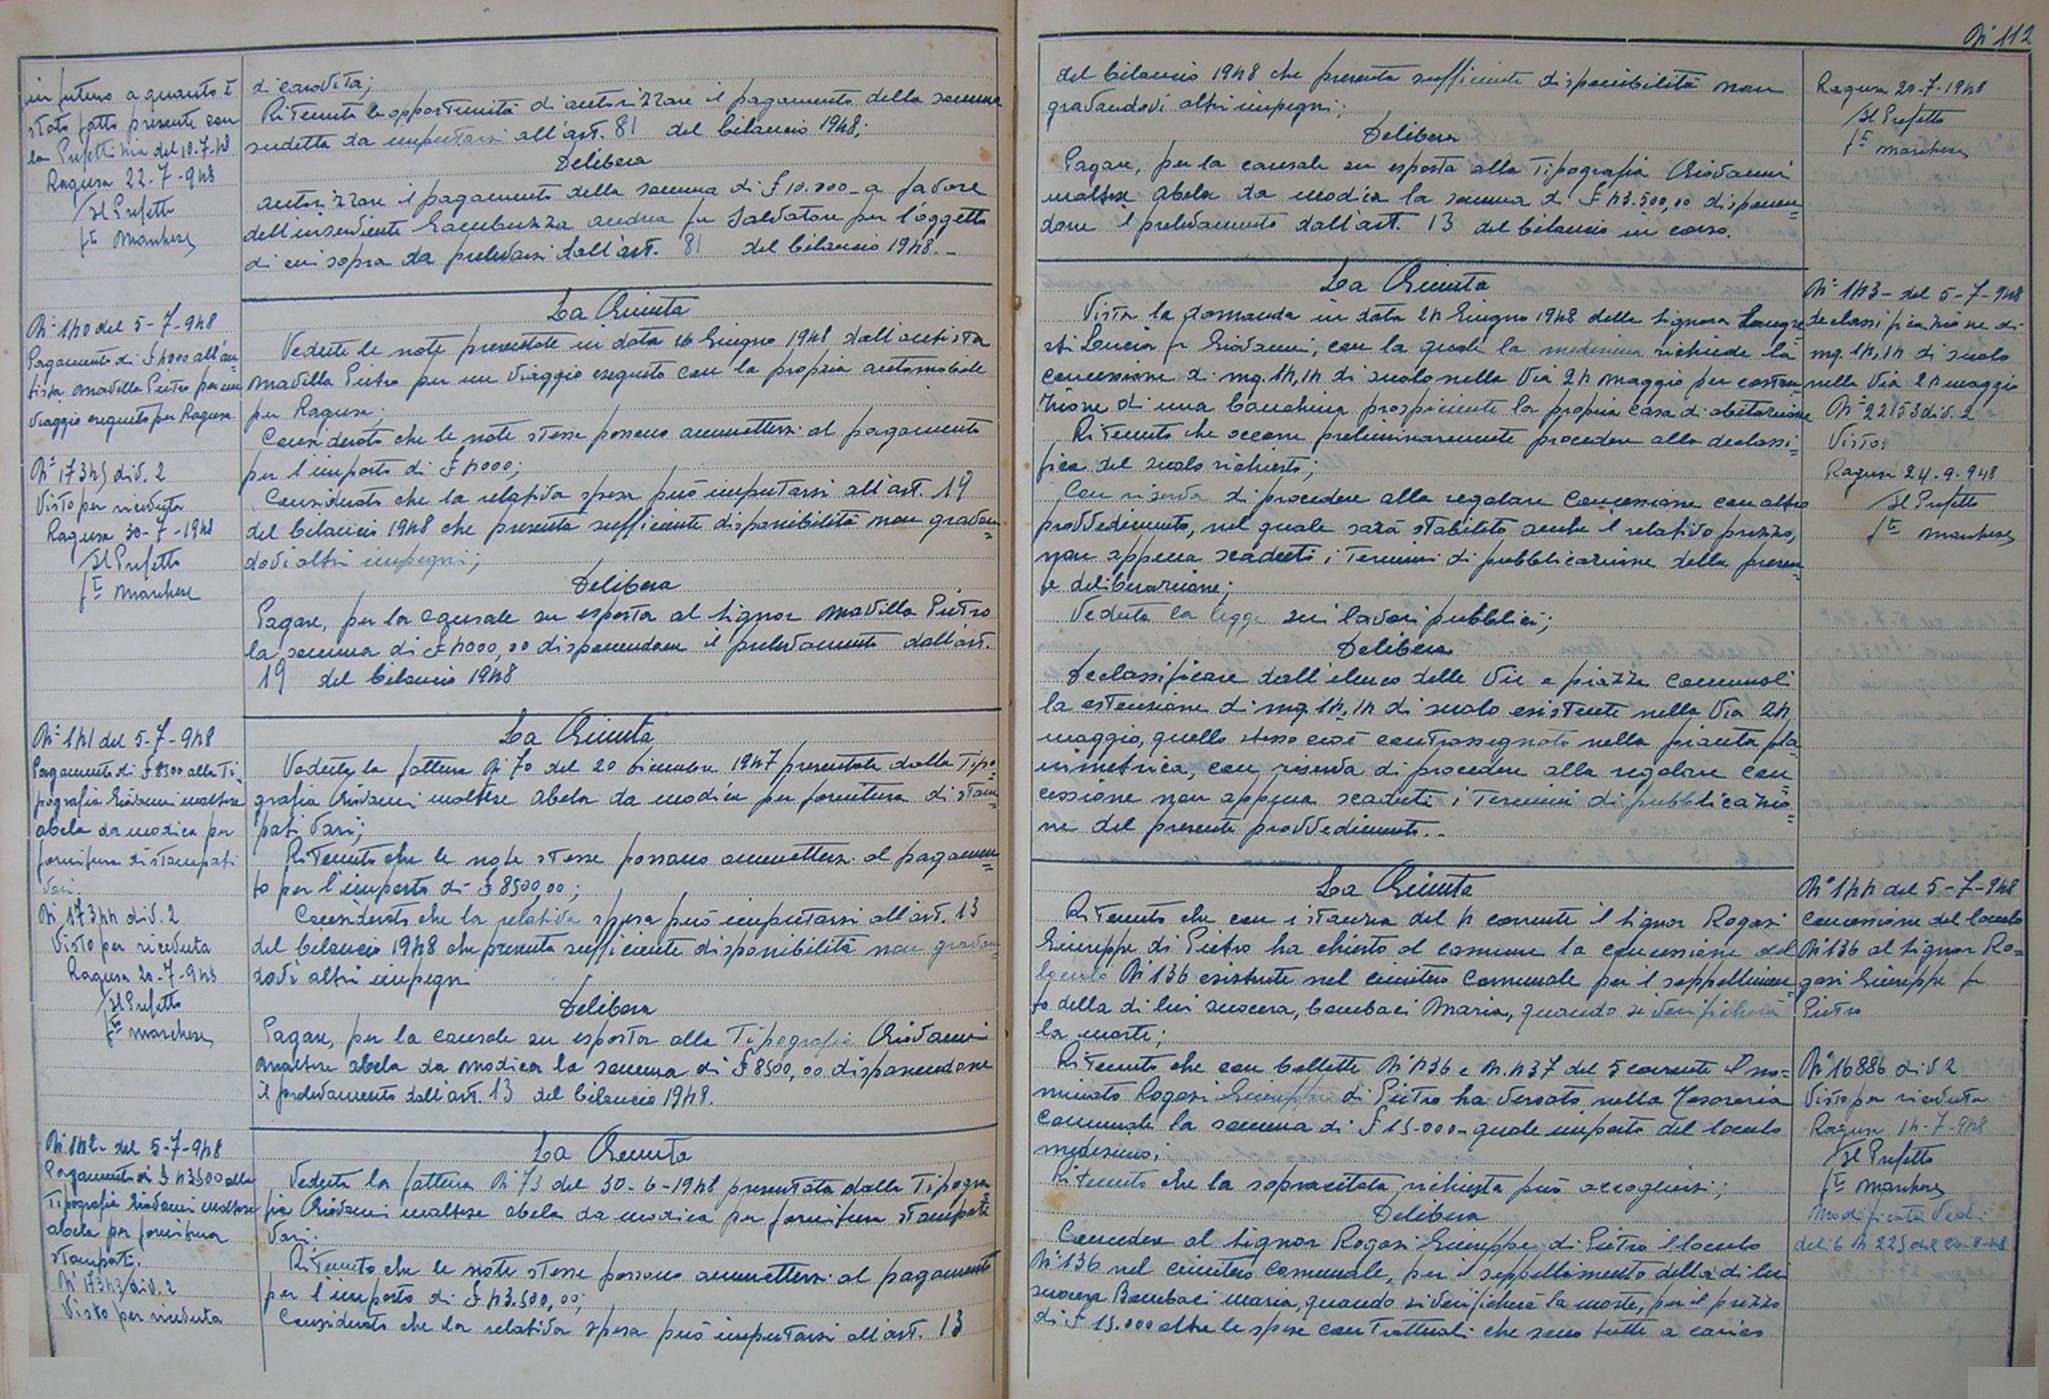 in futuro a quanto è
stato fatto presente con
la Prefettizia del 10.7.48
Ragusa 22-7-948
Il Prefetto
fto Marchese
di carovita;
Ritenuta la opportunità di autorizzare il pagamento della somma
sudetta da imputarsi all'art. 81 del bilancio 1948;
Delibera
autorizzare il pagamento della somma di £ 10.000_ a favore
dell'inserviente Gambuzza Andrea fu Salvatore per l'oggetto
di cui sopra da prelevarsi dall'art. 81 del bilancio 1948._
N° 140 del 5-7-948
Pagamento di £ 4000 all'au
tista Mavilla Pietro per un
viaggio eseguito per Ragusa
N° 17345 div. 2
Visto per ricevuta
Ragusa 30-7-1948
Il Prefetto
fto Marchese
La Giunta
Vedute le note presentate in data 16 Giugno 1948 dall'autista
Mavilla Pietro per un viaggio eseguito con la propria automobile
per Ragusa;
Considerato che le note stesse possono ammettersi al pagamento
per l'importo di £ 4000;
Considerato che la relativa spesa può imputarsi all'art. 19
del bilancio 1948 che presenta sufficiente disponibilità non gravan=
dovi altri impegni;
Delibera
Pagare, per la causale su esposta al Signor Mavilla Pietro
la somma di £ 4000,00 disponendone il prelevamento dall'art.
19 del bilancio 1948
N° 141 del 5-7-948
Pagamento di £ 8500 alla Ti=
pografia Giovanni Maltese
Abela da Modica per
fornitura di stampati
vari.
N. 17344 div. 2
Visto per ricevuta
Ragusa 20-7-948
Il Prefetto
fto Marchese
La Giunta
Veduta la fattura N. 70 del 20 Dicembre 1947 presentata dalla Tipo=
grafia Giovanni Maltese Abela da Modica per fornitura di stam=
pati vari;
Ritenuto che le note stesse possano ammettersi al pagamen=
to per l'importo di £ 8500,00;
Considerato che la relativa spesa può imputarsi all'art. 13
del bilancio 1948 che presenta sufficiente disponibilità non gravan=
dovi altri impegni
Delibera
Pagare, per la causale su esposta alla Tipografia Giovanni
Maltese Abela da Modica la somma di £ 8500,00 disponendone
il prelevamento dall'art. 13 del bilancio 1948.
N° 142 del 5-7-948
Pagamento di £ 43500 alla
Tipografia Giovanni Maltese
Abela per fornitura
stampati.
N° 17343 div. 2
Visto per ricevuta
La Giunta
Veduta la fattura N. 73 del 30-6-1948 presentata dalla Tipogra
fia Giovanni Maltese Abela da Modica per fornitura stampati
vari.
Ritenuto che le note stesse possano ammettersi al pagamento
per l'importo di £ 43.500,00;
Considerato che la relativa spesa può imputarsi all'art. 13
N° 112
del bilancio 1948 che presenta sufficiente disponibilità non
gravandovi altri impegni;
Delibera
Pagare, per la causale su esposta alla Tipografia Giovanni
Maltese Abela da Modica la somma di £ 43.500,00 disponen=
done il prelevamento dall'art. 13 del bilancio in corso.
Ragusa 20-7-1948
Il Prefetto
fto Marchese
La Giunta
Vista la domanda in data 24 Giugno 1948 della Signora
Lucia fu Giovanni, con la quale la medesima richiede la
concessione di mq. 14,14 di suolo nella Via 24 Maggio per costru
zione di una banchina prospiciente la propria casa di abitazione
Ritenuto che occorre preliminarmente procedere alla declassi=
fica del suolo richiesto;
Con riserva di procedere alla regolare concessione con altro
provvedimento, nel quale sarà stabilito anche il relativo prezzo,
non appena scaduti i termini di pubblicazione della presen=
te deliberazione;
Veduta la legge sui lavori pubblici;
Delibera
Declassificare dall'elenco delle Vie e piazze comunali
la estensione di mq. 14,14 di suolo esistente nella Via 24
Maggio, quello stesso cioè contrassegnato nella pianta pla
nimetrica, con riserva di procedere alla regolare con
cessione non appena scaduti i termini di pubblicazio=
ne del presente provvedimento._
N° 143- del 5-7-948
declassificazione di
mq. 14,14 di suolo
nella Via 24 Maggio
N° 22153 div. 2
Visto:
Ragusa 24-9-948
Il Prefetto
fto Marchese
La Giunta
Ritenuto che con istanza del 4 corrente il Signor Rogasi
Giuseppe di Pietro ha chiesto al comune la concessione del
loculo N° 136 esistente nel cimitero comunale per il seppellimen
to della di lui suocera, Bombaci Maria, quando si verificherà
la morte;
Ritenuto che con bollette N° 436 e N. 437 del 5 corrente il no=
minato Rogasi Giuseppe di Pietro ha versato nella Tesoreria
comunale la somma di £ 15.000_ quale importo del loculo
medesimo;
Ritenuto che la sopracitata richiesta può accogliersi;
Delibera
Concedere al Signor Rogasi Giuseppe di Pietro il loculo
N° 136 nel cimitero comunale, per il seppellimento della di lui
suocera Bombaci Maria, quando si verificherà la morte, per il prezzo
di £ 15.000 oltre le spese contrattuali che sono tutte a carico
N° 144 del 5-7-948
Concessione del loculo
N° 136 al Signor Ro=
gasi Giuseppe fu
Pietro
N° 16886 div 2
Visto per ricevuta
Ragusa 14-7-948
Il Prefetto
fto Marchese
Modificata Vedi